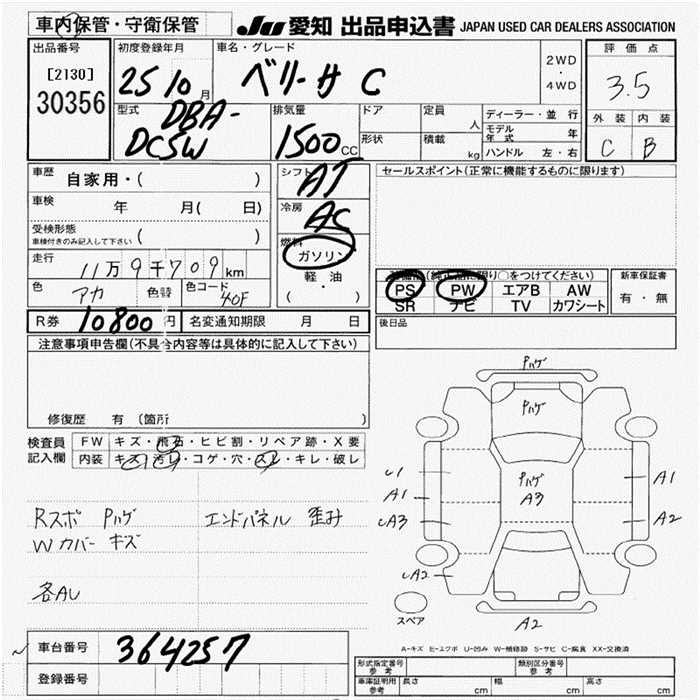 車内保管・守衛保管
JU 愛知 出品申込書 JAPAN USED CAR DEALERS ASSOCIATION
出品番号
[2130]
30356
初度登録年月
25 10月
車名・グレード
ベリーサ C
2WD
・
4WD
評価点
3.5
外装 内装
C B
型式
DBA-
DC5W
排気量
1500CC
ドア
形状
定員
人
積載
kg
ディーラー・並行
モデル年式 年
ハンドル 左・右
車歴 自家用・( )
車検 年 月( 日)
受検形態
車検付きのみ記入して下さい ( )
走行 11万9千709km
色 アカ 色替 色コード 40F
シフト AT
冷房 AC
燃料
ガソリン
・
軽・油
( )
セールスポイント(正常に機能するものに限ります)
(純正品に限り〇をつけてください)
PS PW エアB AW
SR ナビ TV カワシート
新車保証書
有・無
R券 10800円 名変通知期限 月 日
後日品
注意事項申告欄(不具合内容等は具体的に記入して下さい)
修復歴 有 (箇所 )
検査員記入欄
FW キズ・飛石・ヒビ割・リペア跡・X要
内装 キズ・汚レ・コゲ・穴・スレ・キレ・破レ
Rスポ Pハゲ エンドパネル 歪み
Wカバー キズ
各AU
Pハゲ
Pハゲ
Pハゲ
A3
U1
A1
A1
A2
A2
A2
スペア
A-キズ E-エクボ U-凹み W-補修跡 S-サビ C-腐食 XX-交換済
車台番号 364257
登録番号
形式指定番号参考
類別区分番号参考
車庫証明用参考 長さ cm 幅 cm 高さ cm